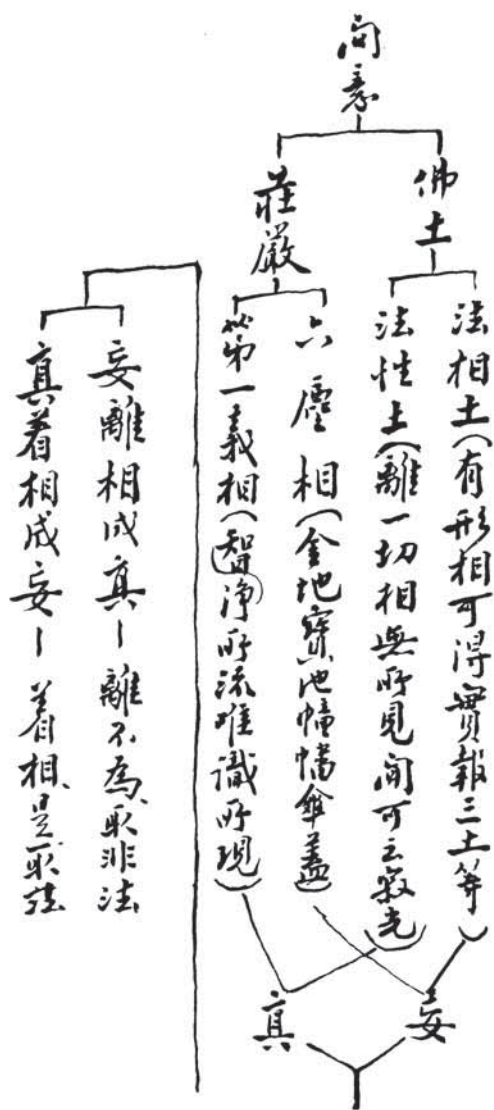 問意
佛土
莊嚴
法相土(有形相可得實報三土等)
法性土(離一切相無所見聞可云寂光)
六塵相(金地寶池幢幡傘蓋)
第一義相(智淨所流唯識所現)
妄
真
妄離相成真—離不為取非法
真着相成妄—着相是取法